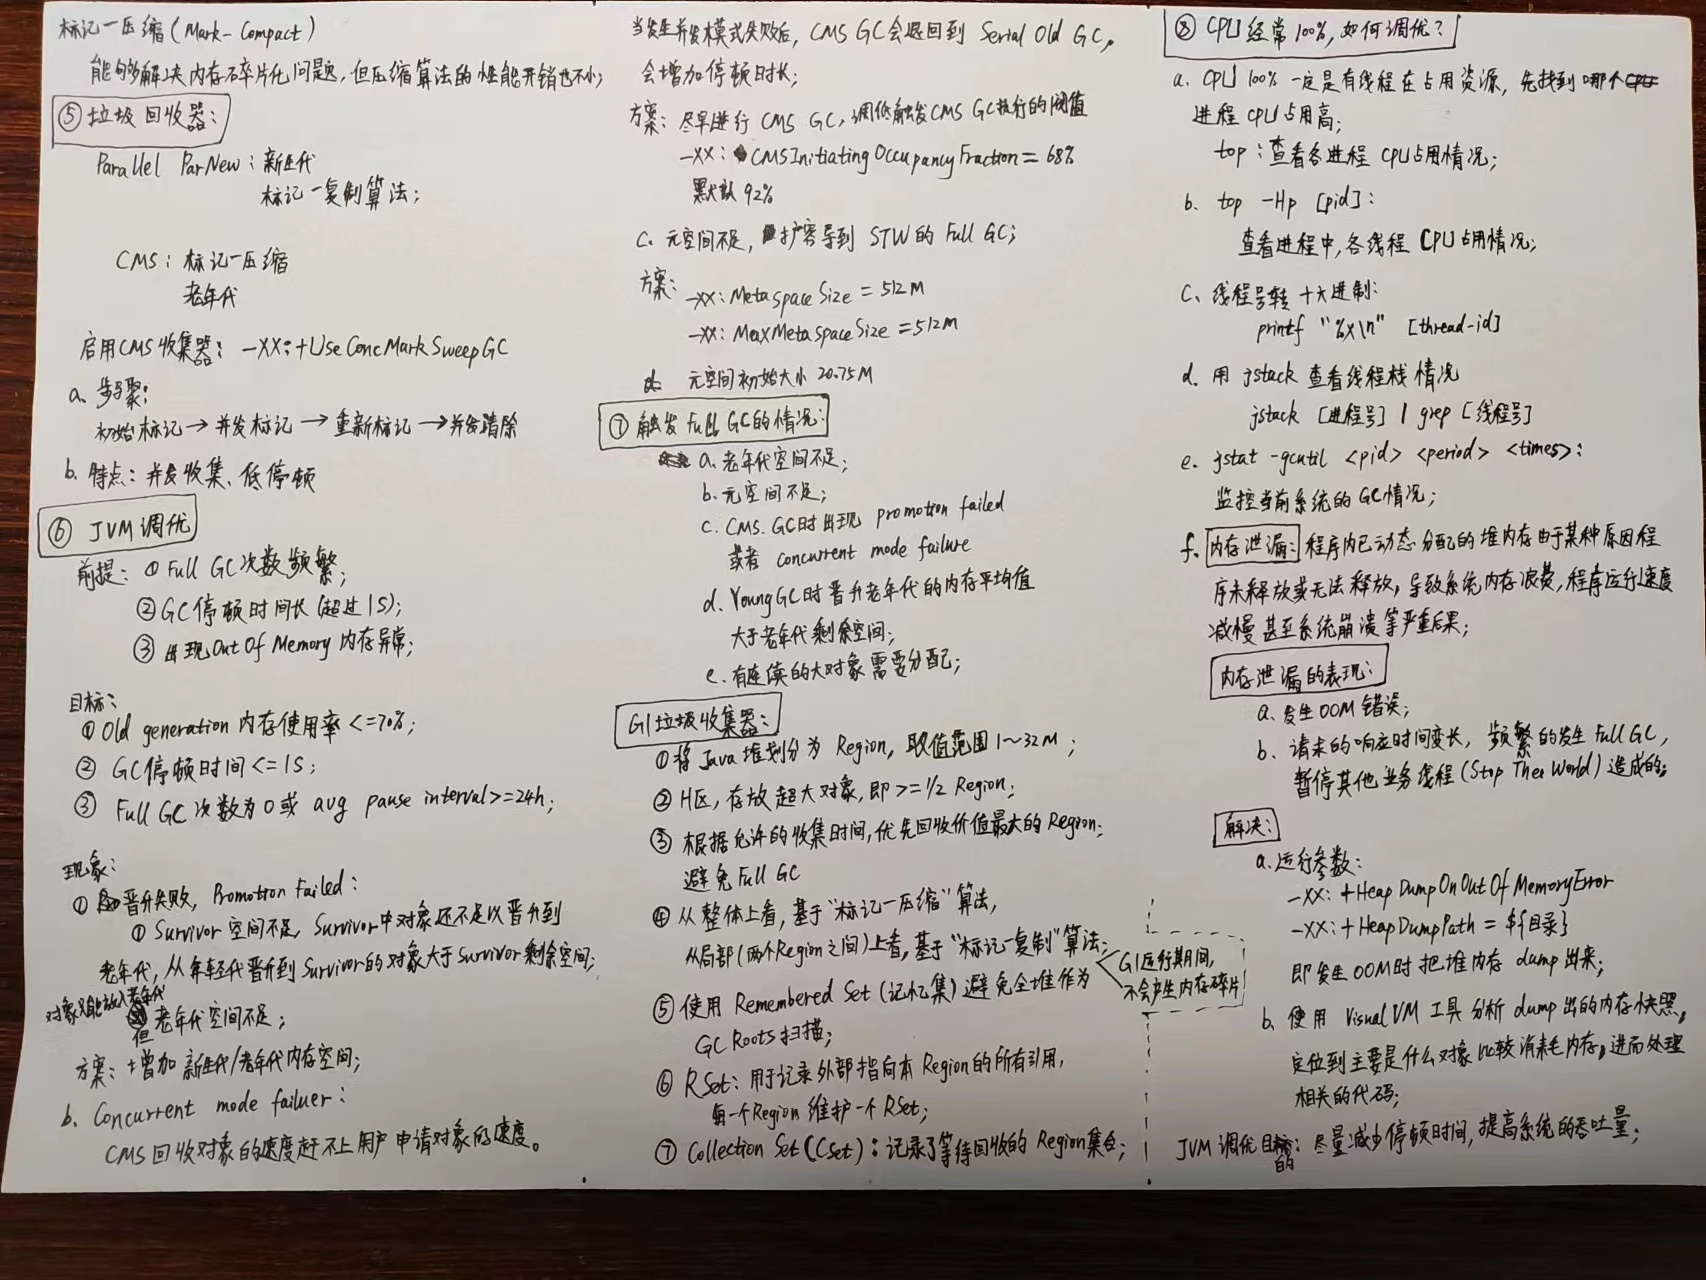 标记一压缩(Mark-Compact)
能够解决内存碎片化问题,但压缩算法的性能开销也不小;
⑤ 垃圾回收器:
Parallel ParNew: 新生代
标记一复制算法;
CMS: 标记一压缩
老年代
启用CMS收集器: -XX:+UseConcMarkSweepGC
a. 步骤:
初始标记→并发标记→重新标记→并发清除
b. 特点: 并发收集、低停顿
⑥ JVM调优
前提: ① Full GC次数频繁;
② GC停顿时间长(超过1S);
③ 出现Out Of Memory内存异常;
目标:
① Old generation内存使用率<=70%;
② GC停顿时间<=1S;
③ Full GC次数为0或 avg pause interval>=24h;
现象:
① 晋升失败, Promotion Failed:
① Survivor空间不足, Survivor中对象还不足以晋升到
老年代, 从年轻代晋升到Survivor的对象大于Survivor剩余空间;
对象只能放入老年代
但老年代空间不足;
方案: 增加新生代/老年代内存空间;
b. Concurrent mode failuer:
CMS回收对象的速度赶不上用户申请对象的速度。
当发生并发模式失败后, CMS GC会退回到 Serial Old GC,
会增加停顿时长;
方案: 尽早进行 CMS GC, 调低触发CMS GC执行的阈值
-XX: CMSInitiatingOccupancyFraction=68%
默认92%
c. 元空间不足, 扩容导到 STW的 Full GC;
方案: -XX: MetaspaceSize=512M
-XX: MaxMetaspaceSize=512M
元空间初始大小20.75M
⑦ 触发Full GC的情况:
a. 老年代空间不足;
b. 元空间不足;
c. CMS.GC时出现 promotion failed
或者 concurrent mode failure
d. YoungGC时晋升老年代的内存平均值
大于老年代剩余空间;
e. 有连续的大对象需要分配;
G1垃圾收集器:
① 将Java堆划分为Region, 取值范围1~32M;
② H区, 存放超大对象, 即>=1/2 Region;
③ 根据允许的收集时间, 优先回收价值最大的Region;
避免Full GC
④ 从整体上看, 基于“标记一压缩”算法,
从局部(两个Region之间)上看, 基于“标记一复制”算法;
G1运行期间,
不会产生内存碎片
⑤ 使用 Remembered Set(记忆集)避免全堆作为
GC Roots扫描;
⑥ RSet: 用于记录外部指向本Region的所有引用,
每一个Region维护一个RSet;
⑦ Collection Set(CSet): 记录了等待回收的Region集合;
⑧ CPU经常100%, 如何调优?
a. CPU 100%一定是有线程在占用资源, 先找到哪个
进程CPU占用高;
top: 查看各进程CPU占用情况;
b. top -Hp [pid]:
查看进程中, 各线程CPU占用情况;
c. 线程号转十六进制:
printf "%x\n" [thread-id]
d. 用 jstack 查看线程栈情况
jstack [进程号] | grep [线程号]
e. jstat -gcutil <pid> <period> <times>:
监控当前系统的GC情况;
f. 内存泄漏: 程序内已动态分配的堆内存由于某种原因程
序未释放或无法释放, 导致系统内存浪费, 程序运行速度
减慢甚至系统崩溃等严重后果;
内存泄漏的表现:
a. 发生OOM错误;
b. 请求的响应时间变长, 频繁的发生Full GC,
暂停其他业务线程(Stop Ther World)造成的;
解决:
a. 运行参数:
-XX: +HeapDumpOnOutOfMemoryError
-XX: +HeapDumpPath=${目录}
即发生OOM时把堆内存dump出来;
b. 使用 VisualVM 工具分析dump出的内存快照,
定位到主要是什么对象比较消耗内存, 进而处理
相关的代码;
JVM调优目的: 尽量减少停顿时间, 提高系统的吞吐量;